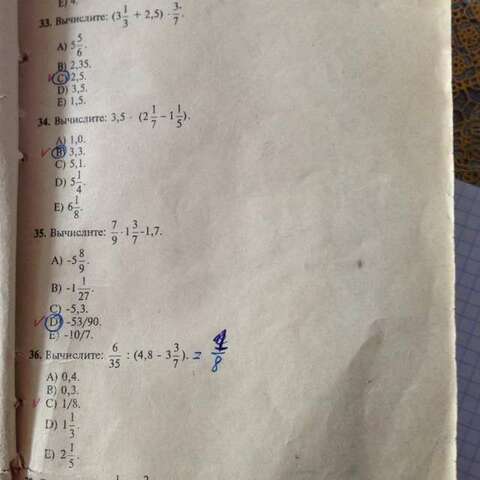 E) 4.
33. Вычислите: (3 1/3 + 2,5) · 3/7.
A) 5 5/6.
B) 2,35.
C) 2,5.
D) 3,5.
E) 1,5.
34. Вычислите: 3,5 · (2 1/7 − 1 1/5).
A) 1,0.
B) 3,3.
C) 5,1.
D) 5 1/4.
E) 6 1/8.
35. Вычислите: 7/9 · 1 3/7 - 1,7.
A) -5 8/9.
B) -1 1/27.
C) -5,3.
D) -53/90.
E) -10/7.
36. Вычислите: 6/35 : (4,8 - 3 3/7). = 1/8
A) 0,4.
B) 0,3.
C) 1/8.
D) 1 1/3.
E) 2 1/5.